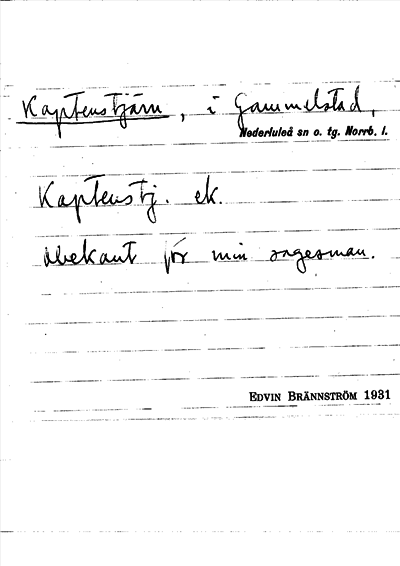 Kaptenstjärn, i Gammelstad,
Nederluleå sn o. tg. Norrb. l.
Kaptenstj. ek.
obekant för min sagesman.
EDVIN BRÄNNSTRÖM 1931